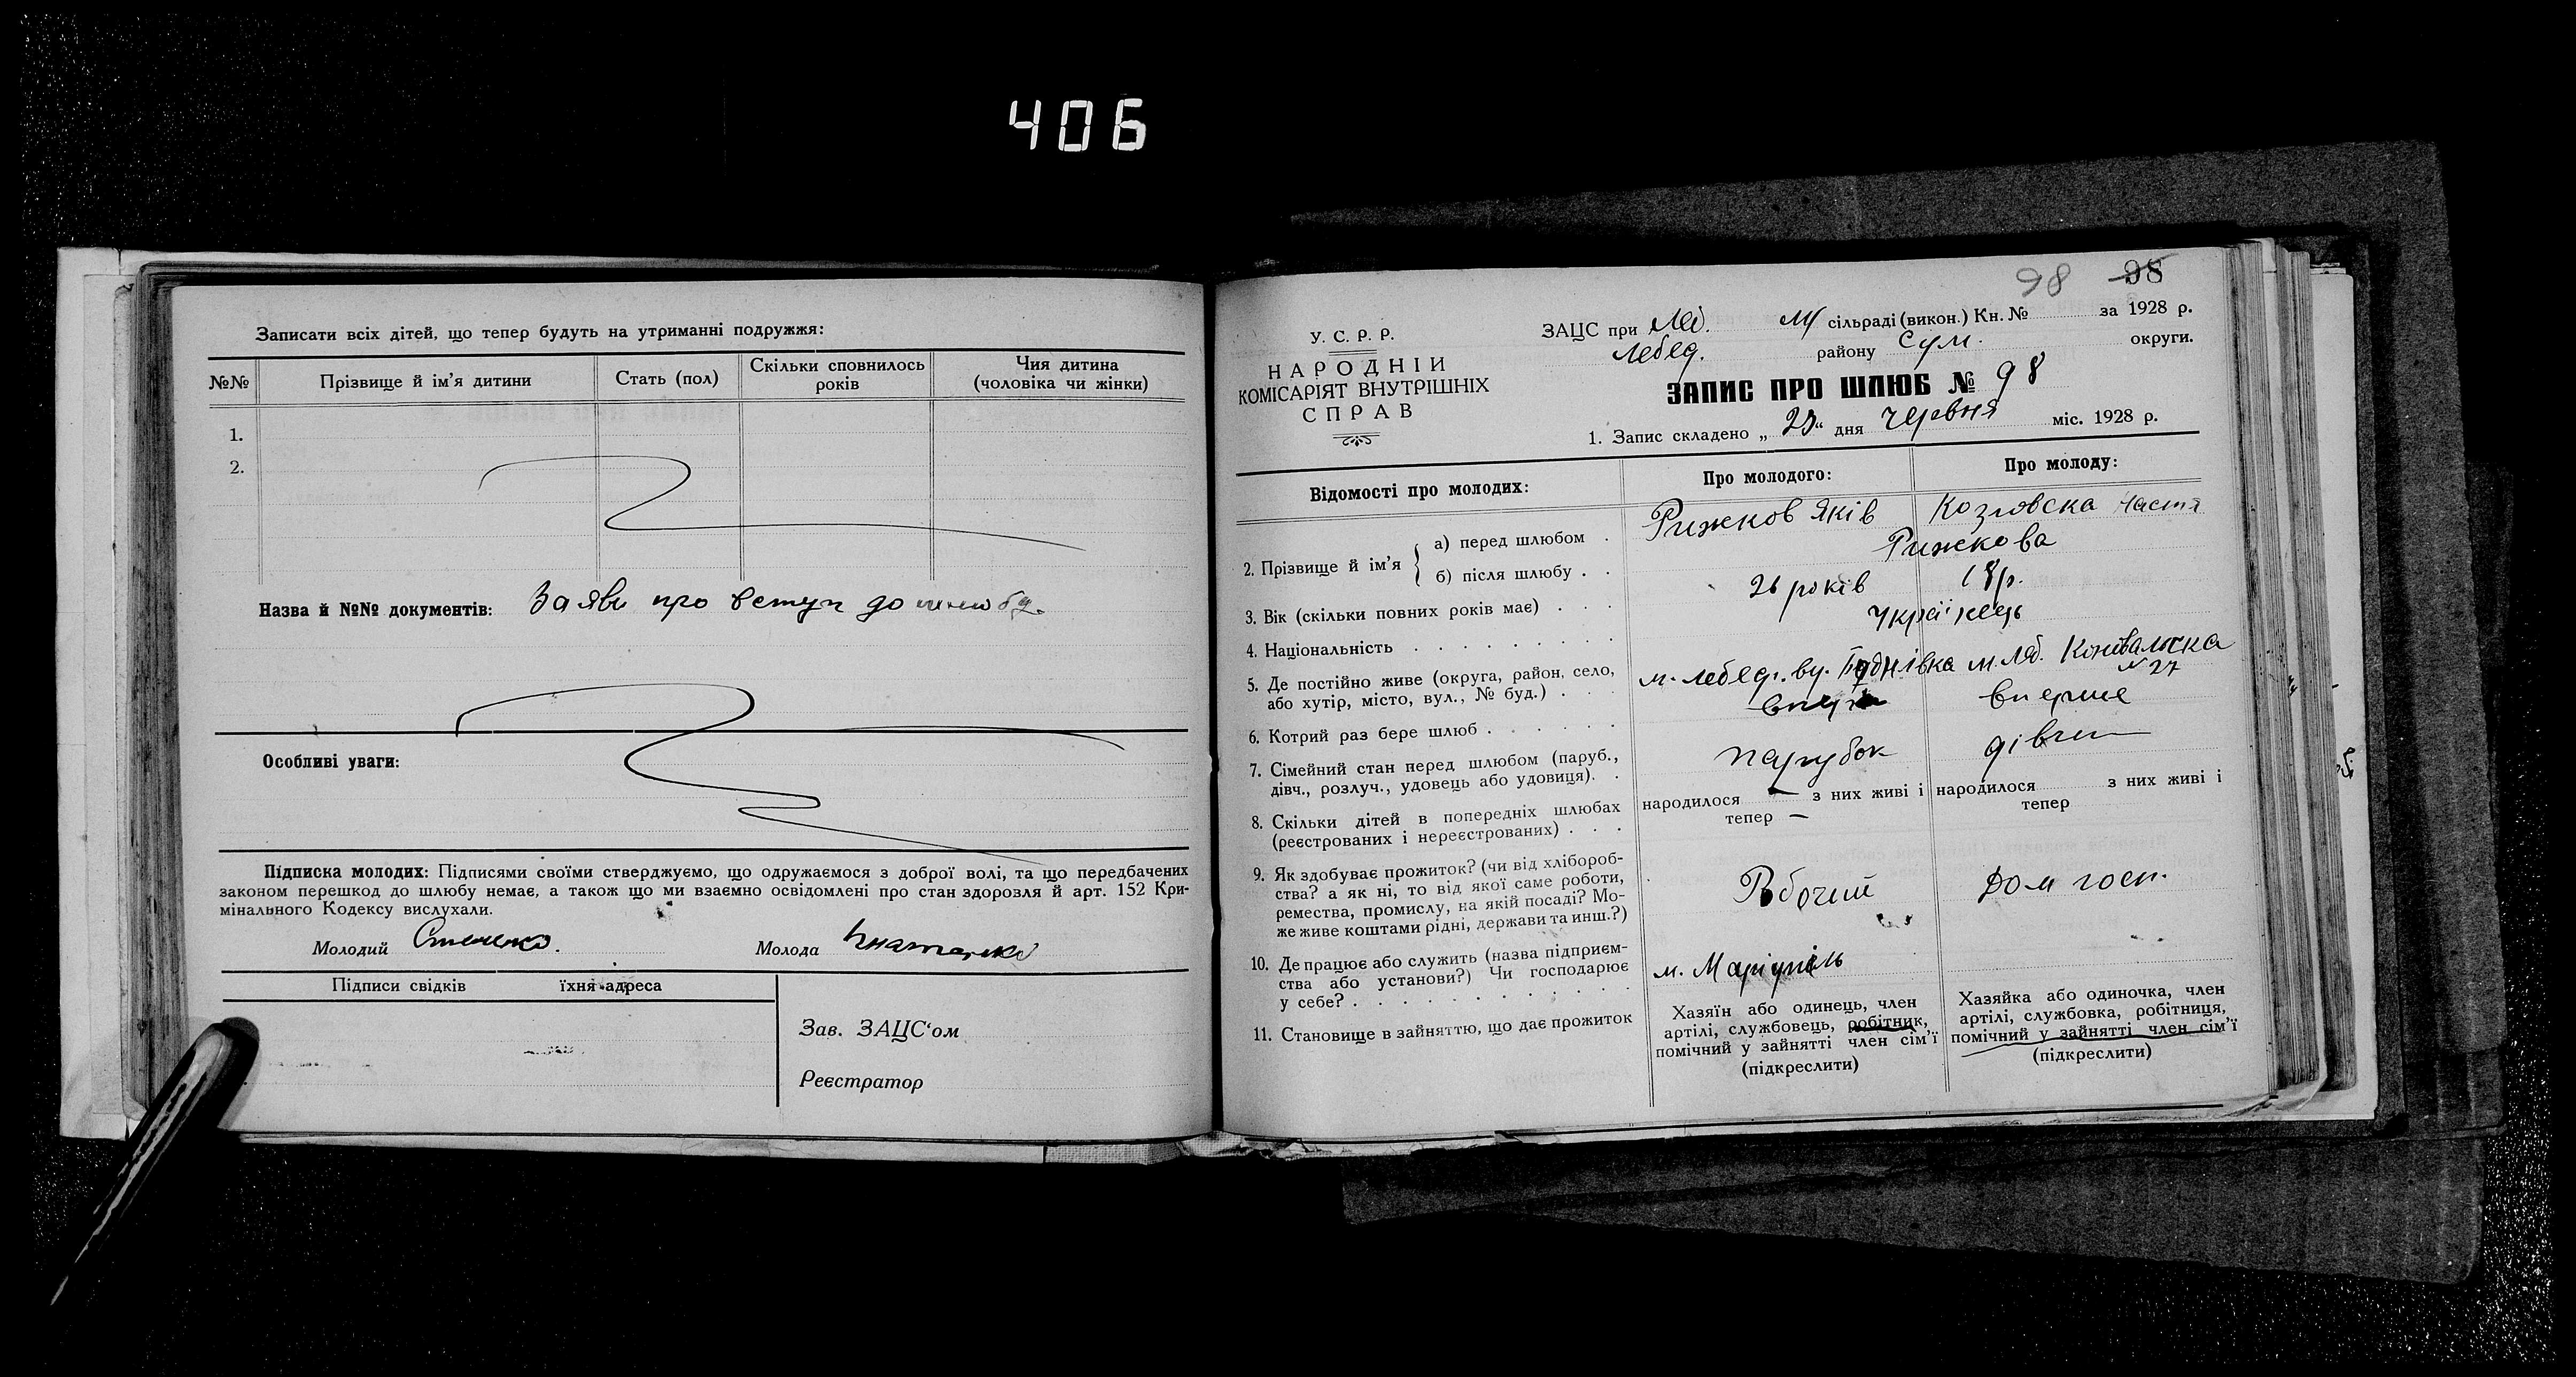 406
Записати всіх дітей, що тепер будуть на утриманні подружжя:
№№ Прізвище й ім'я дитини Стать (пол) Скільки сповнилось років Чия дитина (чоловіка чи жінки)
1.
2.
Назва й №№ документів: Заяви про вступ до шлюбу.
Особливі уваги:
Підписка молодих: Підписями своїми стверджуємо, що одружаємося з доброї волі, та що передбачених
законом перешкод до шлюбу немає, а також що ми взаємно освідомлені про стан здоровля й арт. 152 Кри-
мінального Кодексу вислухали.
Молодий Молода
Підписи свідків їхня адреса
Зав. ЗАЦС'ом
Реєстратор
98 98
У. С. Р. Р.
НАРОДНІЙ
КОМІСАРІЯТ ВНУТРІШНІХ
СПРАВ
ЗАЦС при Леб. М сільраді (викон.) Кн. № за 1928 р.
Лебед. району Сум. округи.
ЗАПИС ПРО ШЛЮБ № 98
1. Запис складено „23“ дня червня міс. 1928 р.
Відомості про молодих: Про молодого: Про молоду:
2. Прізвище й ім'я { а) перед шлюбом . Рижков Яків Козловска Настя
б) після шлюбу . . Рижкова
3. Вік (скільки повних років має) . . . 26 років 18 р.
4. Національність . . . . . . . . Українець
5. Де постійно живе (округа, район, село,
або хутір, місто, вул., № буд.) . . . м. Лебед. ву. м. Леб. № 27
6. Котрий раз бере шлюб . . . . . . вперше вперше
7. Сімейний стан перед шлюбом (паруб.,
дівч., розлуч., удовець або удовиця). . парубок дівчи
8. Скільки дітей в попередніх шлюбах
(реєстрованих і нереєстрованих) . . .
народилося — з них живі і
тепер —
народилося з них живі і
тепер
9. Як здобуває прожиток? (чи від хлібороб-
ства? а як ні, то від якої саме роботи,
ремества, промислу, на якій посаді? Мо-
же живе коштами рідні, держави та инш.?)
Робочий Дом госп.
10. Де працює або служить (назва підприєм-
ства або установи?) Чи господарює
у себе? . . . . . . . . . . . . м. Маріупіль
11. Становище в зайняттю, що дає прожиток
Хазяїн або одинець, член
артілі, службовець, робітник,
помічний у зайнятті член сім'ї
(підкреслити)
Хазяйка або одиночка, член
артілі, службовка, робітниця,
помічний у зайнятті член сім'ї
(підкреслити)